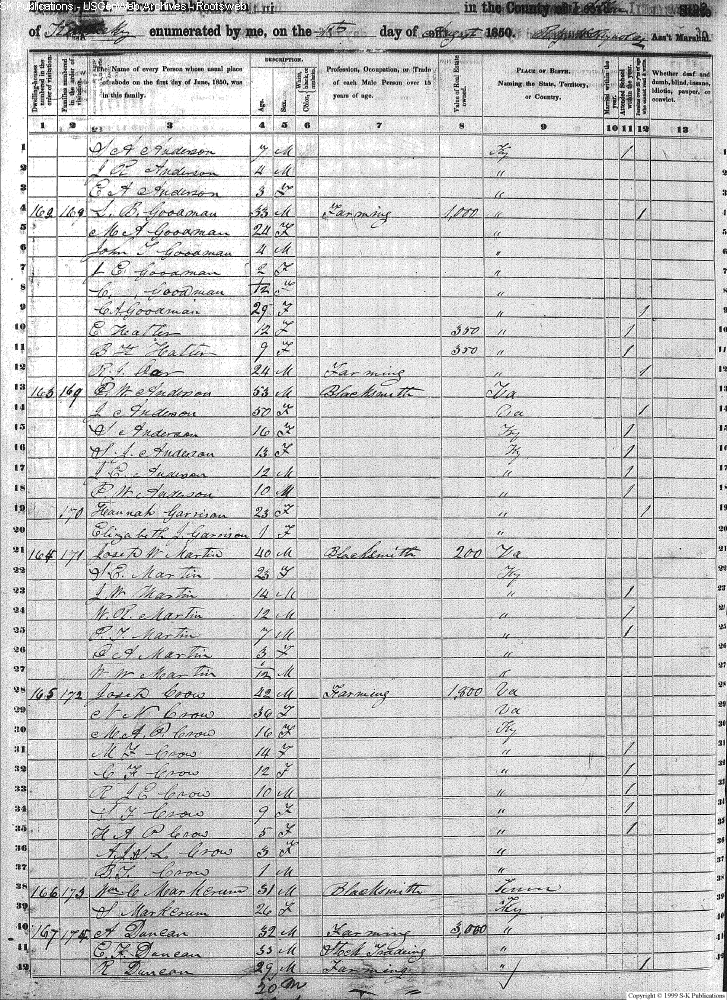 SK Publications - USGenWeb Archives - Rootsweb
in the County of State
of Kentucky enumerated by me, on the day of August 1850. Ass't Marshal.
Dwelling-houses numbered in the order of visitation.
Families numbered in the order of visitation.
The Name of every Person whose usual place of abode on the first day of June, 1850, was in this family.
DESCRIPTION.
Age.
Sex.
Color, White, black, or mulatto.
Profession, Occupation, or Trade of each Male Person over 15 years of age.
Value of Real Estate owned.
PLACE OF BIRTH. Naming the State, Territory, or Country.
Married within the year.
Attended School within the year.
Whether deaf and dumb, blind, insane, idiotic, pauper, or convict.
1 2 3 4 5 6 7 8 9 10 11 12 13
1 S A Anderson 7 M Ky /
2 J R Anderson 4 M "
3 E A Anderson 3 F "
4 162 168 L. B. Goodman 33 M Farming 1,000 " /
5 M A Goodman 24 F "
6 John T Goodman 4 M "
7 E Goodman 2 F "
8 C Goodman /12 F "
9 Goodman 29 F " /
10 E Hatter 12 F 350 " /
11 B F Hatter 9 F 350 " /
12 R. J. 24 M Farming " /
13 163 169 C. W. Anderson 53 M Blacksmith Va
14 J Anderson 50 F Va /
15 S Anderson 16 F Ky /
16 S. J. Anderson 13 F Ky /
17 E. Anderson 12 M " /
18 P W Anderson 10 M " /
19 170 Hannah Garrison 23 F " /
20 Elizabeth J. Garrison 1 F "
21 164 171 Joseph W Martin 40 M Blacksmith 200 Va
22 S. E. Martin 23 F Ky
23 J. W. Martin 14 M " /
24 W. R. Martin 12 M " /
25 P. T. Martin 7 M " /
26 E A Martin 3 F "
27 W W Martin /12 M "
28 165 172 Joseph Crow 42 M Farming 1,800 Va
29 N N Crow 36 F Va
30 M A P Crow 16 F Ky
31 M F Crow 14 F " /
32 C F Crow 12 F " /
33 R J E Crow 10 M " /
34 S F Crow 9 F " /
35 H A P Crow 5 F " /
36 A J L. Crow 3 F "
37 B F. Crow 1 M "
38 166 173 Wm C Markerum 31 M Blacksmith Tenn
39 S Markerum 26 F Ky
40 167 174 A Duncan 32 M Farming 3,000 "
41 C. F. Duncan 35 M Stock Trading "
42 R Duncan 29 M Farming " /
20 M " "
Copyright © 1999 S-K Publications